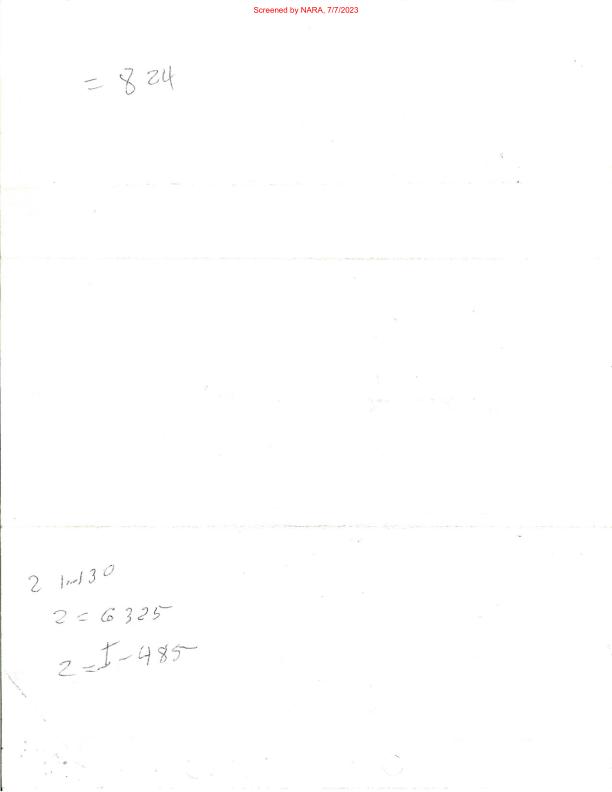 Screened by NARA, 7/7/2023
= 824
2 130
2 = G 325
2 = I - 485